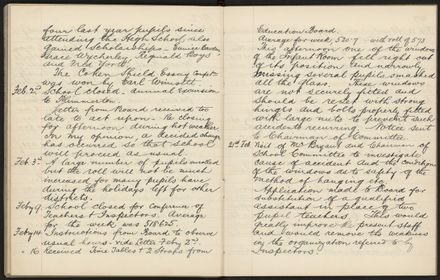 four last year pupils since
attending the High School, also
gained Scholarships. Eunice
Isaac Wycherley, Reginald Boys
and Fred North.
The Cohen Shield Essay Compt
was won by Earl
Feb. 2nd School closed. Annual Excursion
to Plimmerton
Letter from Board received too
late to act upon. Re closing
for afternoon, during hot weather
In my opinion, a decided change
has occurred so that school
will proceed as usual
Feb. 3rd A large number of pupils enrolled
but the roll will not be much
increased for many pupils have
during the holidays left for other
districts.
Feby 9 School closed for Conference of
Teachers & Inspectors. Average
for the week was 518.625.
Feby 14 Instructions from Board to observe
usual hours. vide Letter Feby 2nd.
16 Received Time Tables & 2 from
Education Board.
Average for week, 520.7 with roll of 573
This afternoon one of the windows
of the Infant Room fell right out
of its position and narrowly
missing several pupils smashed
all the glass. These windows
are not securely fitted and
should be reset with strong
hinges and bolts properly fitted
with large nuts to prevent such
accidents recurring. Notice sent
to Chairman of Committee
21st Feb. Visit of Mr Bryant and Chairman of
School Committee to investigate
cause of accident and the condition
of the windows as to safety of the
method of hanging etc.
Application made to Board for
substitution of a qualified
assistant in place of two
pupil teachers. This would
greatly improve the present staff
and would remove the weakness
in the organization referred to by
Inspectors